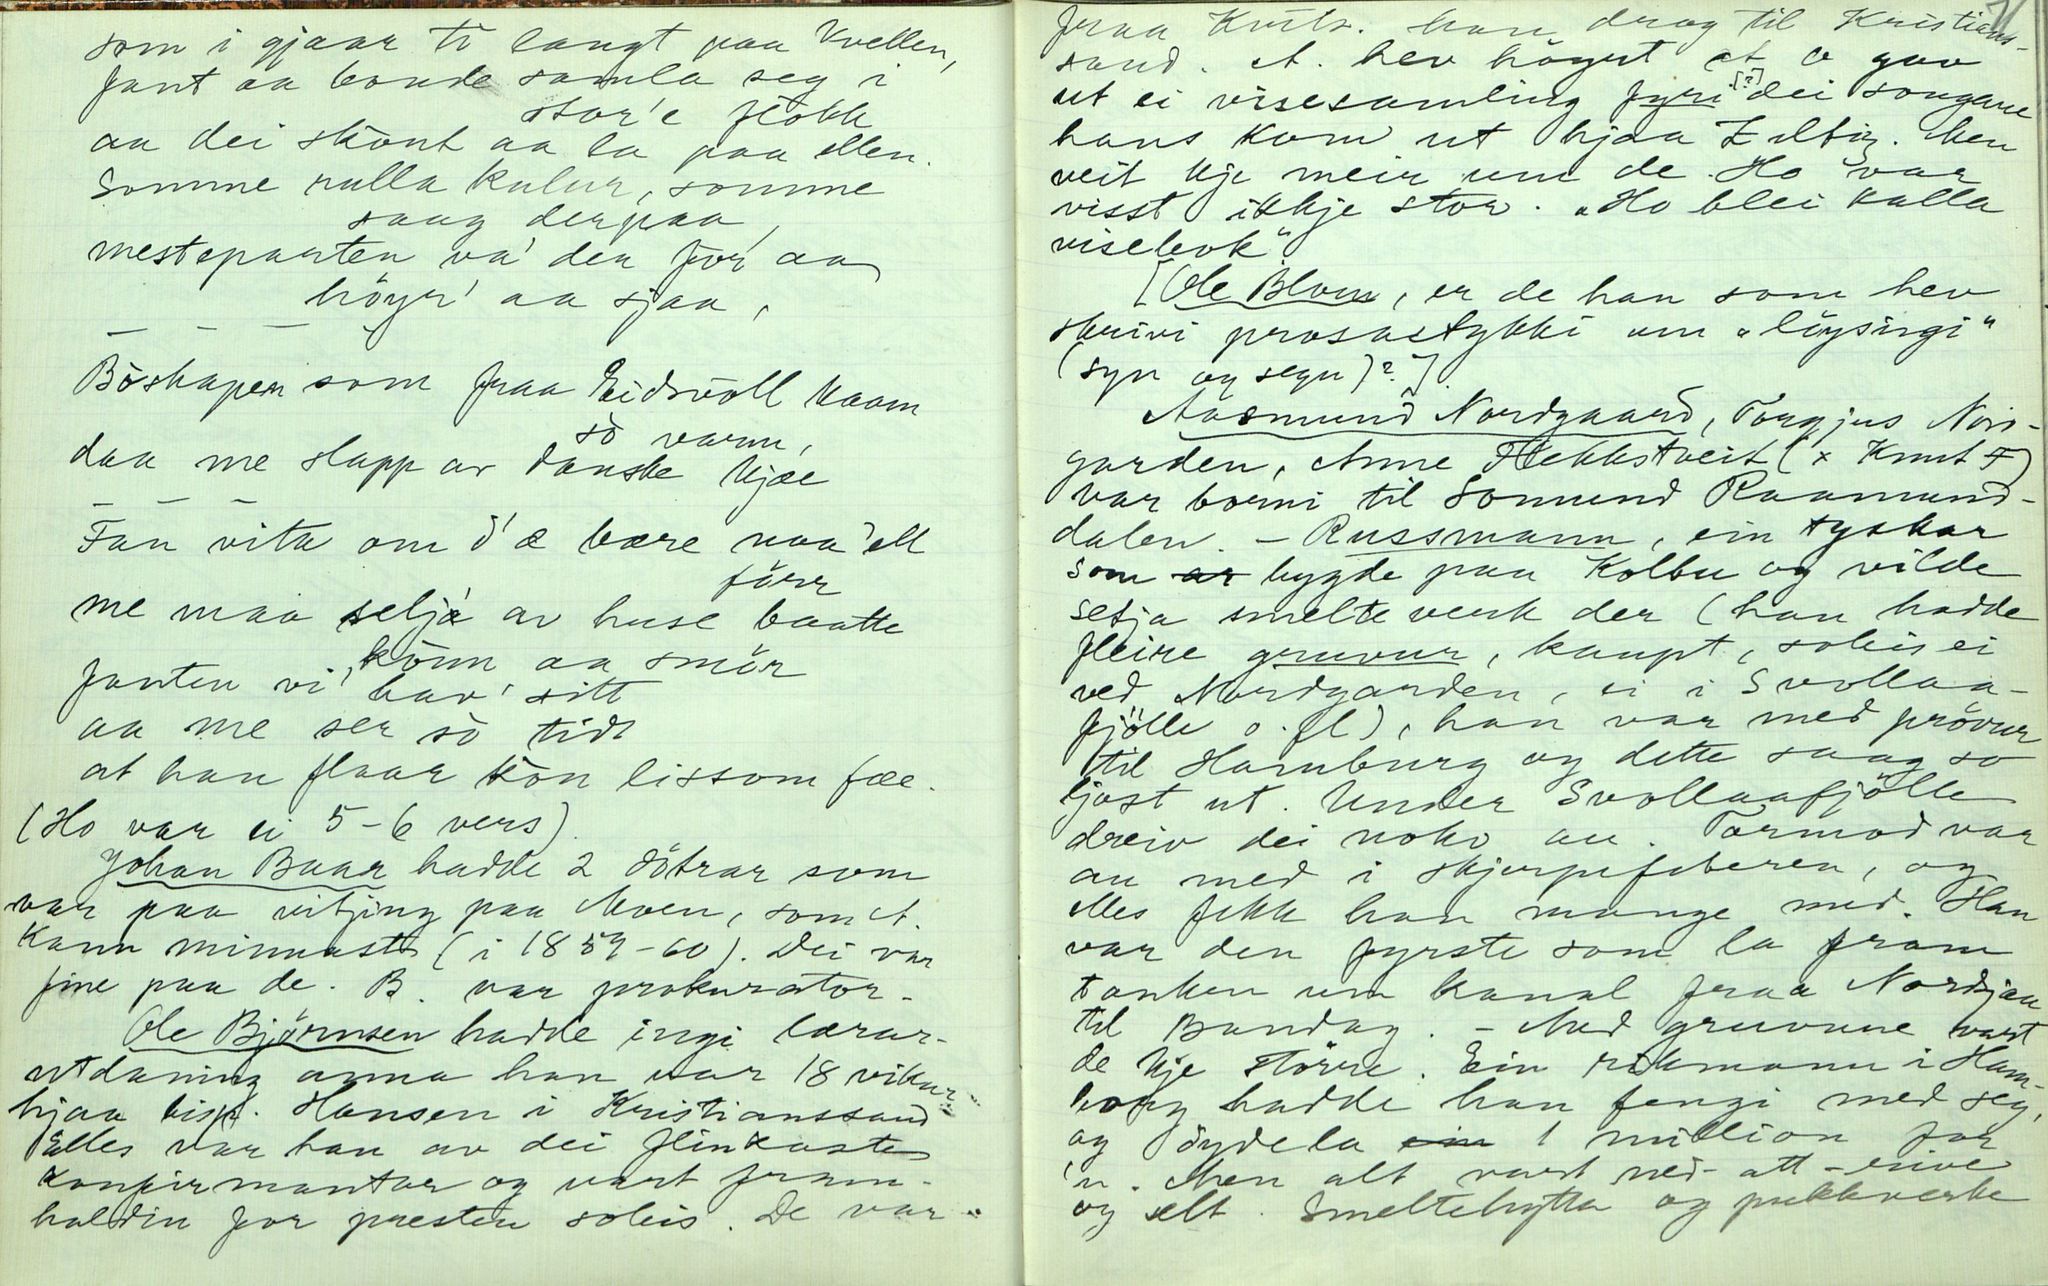 som i gjaar ti langt paa Kvellen,
fant aa bonde samla seg i
stor'e flokk
aa dei skônt aa la paa ellen.
Somme rulla kulur, somme
saag derpaa,
mesteparten va' der for' aa
høyr' aa sjaa,
— — —
Böskapen som fraa Eidsvoll kaam
so varm,
daa me slapp av danske kjæe
— — —
Fan vita om d'æ bære naa 'ell
förr
me maa selja av huse baatte
könn aa smör
fanten vi' hav' sitt
aa me ser so tidt
at han flaar kon lissom fæe.
(Ho var ei 5-6 vers).
Johan Baar hadde 2 döttrar som
var paa vitjing paa Moen, som A.
kann minnast (i 1859-60). Dei var
fine paa de. B. var prokurator.
Ole Björnsen hadde ingi lærar-
utdaning anna han var 18 vikur
hjaa bisp. Hansen i Kristianssand
Elles var han av dei flinkaste
konfirmantar og vart fram-
haldin for presten soleis. De var
71
fraa Kvits. han drog til Kristians-
sand. A. hev höyrt at O gav
ut ei visesamling fyri [?] dei songane
hans kom ut hjaa . Men
veit kje meir um de. Ho var
visst ikkje stor. "Ho blei kalla
visebok"
[Ole Blom, er de han som hev
skrivi prosastykki um "löysingi"
(syn og segn)?].
Aasmund Nordgaard, Torgjus Nor-
garden, Anne Flekkstveit (x Knut F)
var borni til Sonnund Raamund-
dalen. - Russmann, ein tyskar
som ar bygde paa Kolbu og vilde
setja smelteverk der (han hadde
fleire gruvur, kaupt, soleis ei
ved Nordgarden, ei i Svollaa-
fjölle o.fl), han var med prövur
til Hamburg og dette saag so
ljost ut. Under Svollaafjölle
dreiv dei noko au. Tormod var
au med i skjerpefeberen, og
elles fekk han mange med. Han
var den fyrste som la fram
tanken um kanal fraa Nordsjaa
til Bandag. - Med gruvune vart
de kje större. Ein rikmann i Ham-
borg hadde han fengi med seg,
og öydela ein 1 million for
'n. Men alt vart ned-att-
og selt. Smeltehytta og pukkverke